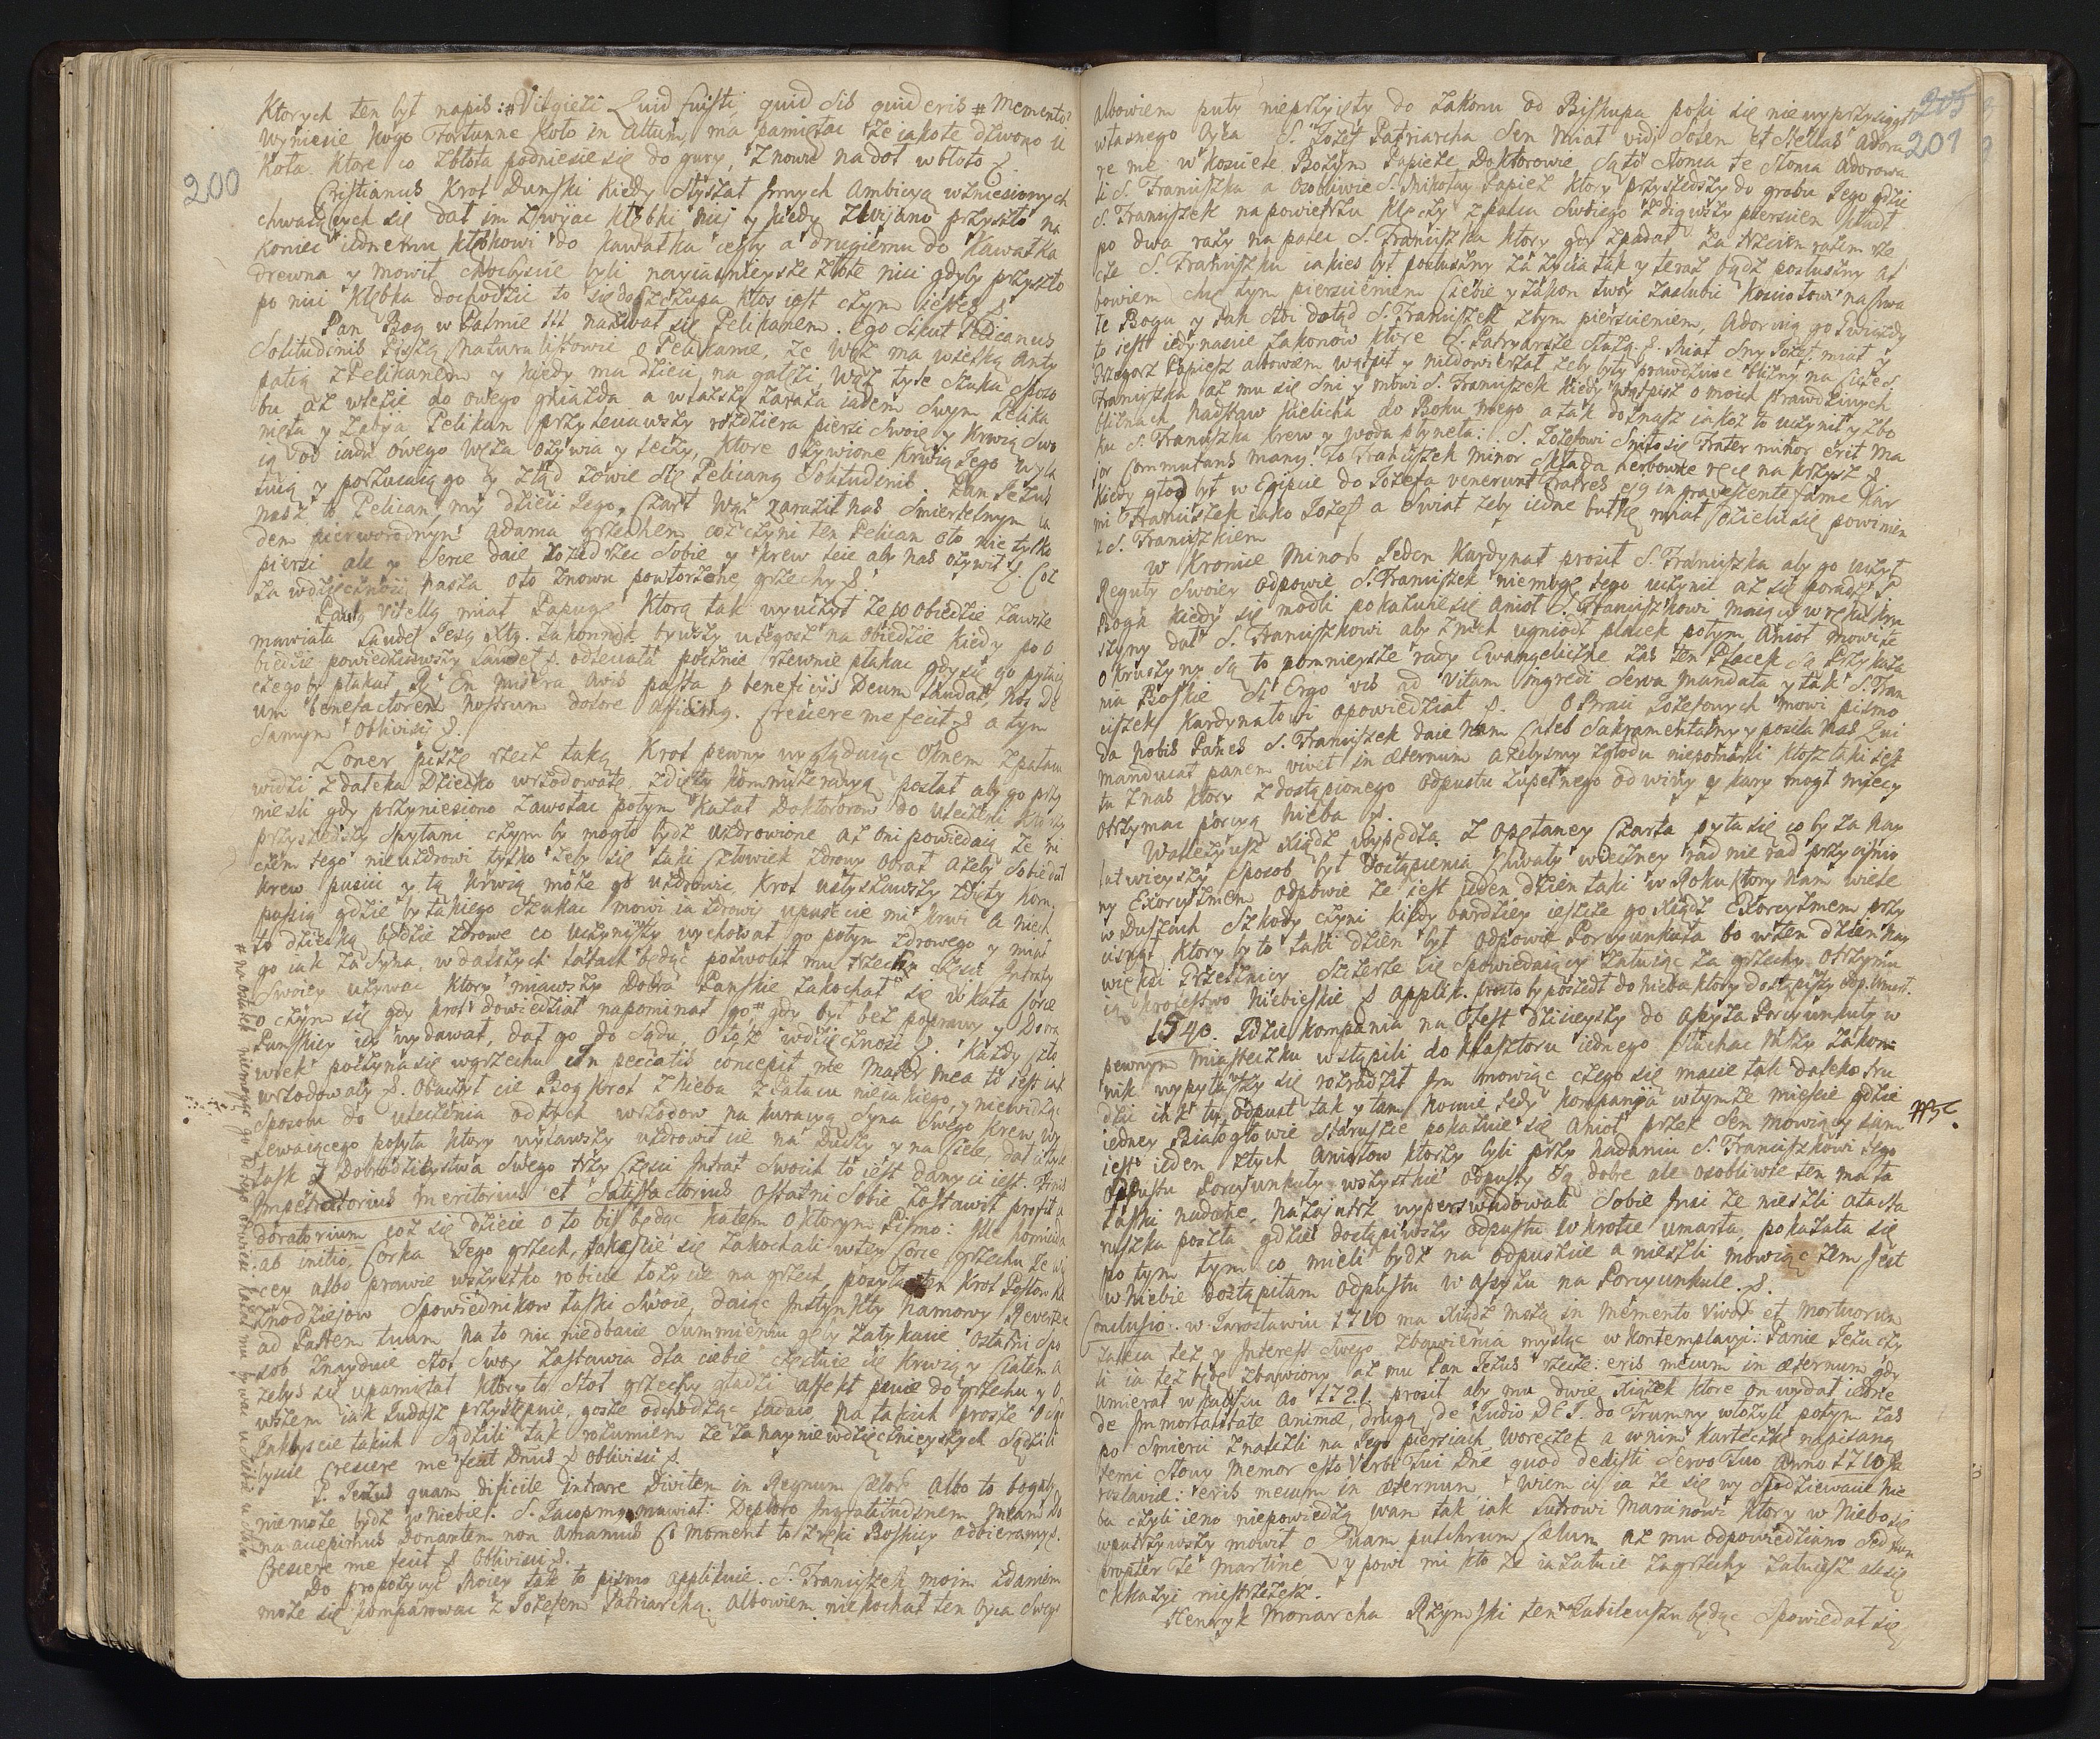 200
Ktorych ten był napis: # Vilgieli Quid fuisti, quid sis quid eris # Memento
Wyniesie kogo Fortunne Koło in Altum, ma pamiętac że iakoże dzwono u
Koła. Ktore co z błota podniesie się do gury, znowu na doł w błoto &.
Cristianus Krol Dunski kiedy słyszał Jnnych Ambicyą wzniesionych
chwalących się dał im zwijac kłębki nici y kiedy zwijano przyszło na
koniec iednemu kłębkowi do kawałka cegły a drugiemu do kawałka
drewna y mowił chocbyscie byli nayiasnieysze złote nici gdyby przyszło
po nici kłębka dochodzic to się doszczetupa ktos iest czym iestes &
Pan Bog w Psalmie 111 nazwał się Pelikanem. ego sicut Pelicanus
Solitudinis Piszą Naturalistowie o Pelikanie, że Wąz ma wielką Anty
patią z Pelikanem y kiedy ma dzieci, na gałęzi, Wąz tyle szuka sposo
bu aż wlezie do owego gniazda a wlazszy zaraża iadem swym Pelika
nięta y zabija Pelikan przyleciawszy rozdziera piersi swoie y krwią swo
ią od iadu owego węża ożywia y leczy, ktore ożywione krwią Jego wyla
tuią y porzucaią go y ztąd zowie się Pelicanq Solitudinis. Pan Jezus
nasz to Pelican, my dzieci Jego, Czart Wąz zaraził nas smiertelnym ia
dem pierworodnym Adama grzechem, coz czyni ten Pelican oto nie tylko
piersi ale y serce daie rozedrzec sobie y krew leie aby nas ożywił &. Coż
za wdzięcznosc nasza oto znowu powtorzone grzechy &.
Pauq Vitellq miał Papugę ktorą tak wyuczył że po obiedzie zawsze
mawiała Laudet Jesq Xtq. Zakonnik bywszy u tegosz na obiedzie kiedy po o
biedzie powiedziawszy Laudet &. odleciała pocznie rzewnie płakac gdy się go pytaią
czegoby płakał R. En misera avis pasta p beneficijs Deum laudat, nos De
um benefactorem nostrum dolore afficimq. Cresiere me fecit & a tym
samym oblivisci &.
Loner pisze rzecz taką Krol pewny wyglądaiąc oknem z pałacu
widzi z daleka Dziecko wrzodowate, zdięty kommizeracyą posłał aby go przy
niesli gdy przyniesiono zawołac potym kazał Doktororow do uleczenia ktorzy
przyszedszy spytani czymby mogło bydz uzdrowione, aż oni powiedaią że ni
czem tego nie uzdrowi tylko żeby się taki Człowiek zdrowy obrał ażeby sobie dał
krew puscic y tą krwią może go uzdrowic, Krol usłyszawszy zdięty kom
pasyą gdzieby takiego szukac mowi ia zdrowy upuscie mi krwi a niech
to dziecka będzie zdrowe co uczyniwszy wychował go potym zdrowego y miał
go iak za syna, w dalszych latach będąc pozwolił mu trzeciey części Jntraty
swoiey używac ktory miawszy Dobra Panskie zakochał się w kata corce
o czym się gdy krol dowiedział napominał go # gdy był bez poprawy y Dobra
Panskiey iey wydawał, dał go do sądu, otoz wdzięcznosc &. Każdy Czło
wiek poczyna się w grzechu In peccatis concepit me Mater mea to iest iak
wrzodowaty &. Obaczył cie Bog krol z nieba z Pałacu nieiakiego y niewidząc
sposobu do uleczenia od tych wrzodow na kuracyą Syna swego krew wy
lewaiącego posyła ktory wylawszy uzdrowił cie na Duszy y na Ciele, dał ci tyle
łask z Dobrodzieystwa swego trzy części Jntrat swoich to iest dany ci iest
Jmpetratorius meritorius et Satisfactorius ostatni sobie zostawił
doratorium coz się dzieie oto bis będąc katem o ktorym Pismo: Ille homicida
ab initio, Corka Jego grzech, takescie się zakochali w tey Corce grzechu że wię
cey albo prawie wszystko robicie to życie na grzech, posyła ten Krol Pastor
znodziejow Spowiednikow łaski swoie, daiąc Jnstynkty namowy Revertere
ad Patrem tuum na to nic niedbacie Summieniu gęby zatykacie ostatni spo
sob znayduie stoł swoy zastawia dla ciebie częstuie cię krwią y Ciałem a
żebys się upamiętał ktory to stoł grzechy gładzi affekt psuie do grzechu y o,
wszem iak Judasz przystępnie, goszc odchodząc ladaco na takich proszę Was
Jakbyscie takich sądzili tak rozumiem że za nayniewdzięcznieyszych sądzili
byscie Cresiere me fecit Dnus & oblivisci &.
P. Jezus quam dificile Intrare Divitem in Regnum Cælor. Albo to bogaty
niemoże bydz w niebie. S. Jacopmu mawiał: Deploro Jngratitudinem meam
na accepimus Donantem non Amamus Co moment to z ręki Boskiey odbieramy.
Cresiere me fecit & Oblivisci &.
Do propozycyi moiey tak to pismo applikuie. S. Franciszek moim zdaniem
może się komparowac z Jozefem Patriarchą. Albowiem nie kochał ten Oyca swego
# na ostatek niemogąc go od tego odwiesc kazał mu bywac u siebie u stołu
205
201
albowiem puty nieprzyięty do zakonu od Biskupa poki się nie wyprzysiągł
własnego Oyca S. Jozef Patriarcha Sen miał vidi Solem et Stellas adora
re me. w kosciele Bożym Papieże Doktorowie są to Słonca te Słonca adorowa
li S. Franciszka a osobliwie S. Mikołay Papież ktory przyszedszy do grobu Jego gdzie
S. Franciszek na powietrzu klęczy z palca swoiego zdiąwszy piersciem kładł
po dwa razy na palec S. Franciszka ktory gdy spadał za trzecim razem rze
cze S. Franciszku iakies był posłuszny za życia tak y teraz bądz posłuszny al
bowiem chcę tym piersciniem Ciebie y zakon twoy zaslubic Kosciołowi
te Bogu y tak stoi dotąd S. Franciszek z tym piersceniem, Adoruią go Gwiazdy
to iest iedynascie zakonow ktore S. Patryarsze służą. &. Miał Sny Jozef, miał y
Grzegorz Papież albowiem wątpił y niedowierzał żeby były prawdziwe blizny na Ciele S.
Franciszka aż mu się sni y mowi S. Franciszek kiedy wątpisz o moich prawdziwych
bliznach nadstaw kielicha do Boku mego a tak doznasz iakoż to uczynił y z bo
ku S. Franciszka krew y woda płyneła: S. Jozefowi sniło się Frater minor erit ma
jor commutans manq. to Franciszek minor składa herbowne ręce na krzysz &
kiedy głod był w Egipcie do Jozefa venerunt Fratres ejq in gravescente fame Kar
mi Franciszek iako Jozef a Swiat żeby iedne bułkę miał Dzielic się powinien
z S. Franciszkiem
W Kronice Minor Jeden Kardynał prosił S. Franciszka aby go uczył
Reguły swoiey odpowie S. Franciszek niemogę tego uczynic aż się poradzę P.
Boga kiedy się modli pokazuie się Anioł S. Franciszkowi maiący w ręku kru
szyny dał S. Franciszkowi aby z nich ugniodł placek potym Anioł mowi że
okruszyny są to pomnieysze rady Ewangeliczne zas ten Placek są Przykaza
nia Boskie Si Ergo vis ad Vitam ingredi serva mandata y tak S. Fran
ciszek Kardynałowi opowiedział &. O Braci Jozefowych mowi pismo
da nobis Panes S. Franciszek daie Nam Chleb Sakramentalny y posila nas Qui
manducat panem vivet in æternum ażebysmy z głodu niepomarli ktosz taki iest
tu z nas ktory z dostąpionego odpustu zupełnego od winy y kary mogł więcey
otrzymac porcyą Nieba &.
Walleżyusz Xiądz wypędza z opętaney Czarta pyta się co by za nay
łatwieyszy sposob był dostąpienia chwały wieczney rad nie rad przycisnio
ny Exorcyzmem odpowie że iest ieden dzien taki w Roku ktory nam wiele
w Duszach szkody czyni kiedy bardziey ieszcze go Xiądz Exorcyzmem przy
cisnął ktory by to taki dzien był odpowie Porcyunkuła bo w ten dzien nay
więksi Grzesznicy szczerze się spowiedaiący załuiąc za grzechy otrzymu
ią krolestwo niebieskie & applik. prosto by poszedł do nieba ktory dostąpiszy Odp. Umarł.
1540. Idzie kompania na Czest dzisieyszy do Assyza Porcyunkuły w
pewnym Miasteczku wstąpili do klasztoru iednego słuchac Mszy zakon
nik wypytawszy się rozradził Jm mowiąc czego się macie tak daleko tru
dzic iak tu odpust tak y tam nocuie tedy kompanija w tymże miescie gdzie
iedney Białogłowie staruszce pokazuie się Anioł przez Sen mowiąc ia sam
iest ieden z tych Aniołow ktorzy byli przy nadaniu S. Franciszkowi tego
Odpustu Porcyunkuły wszystkie odpusty są dobre ale osobliwie ten ma ta
łaski nadane. Nazajutrz wyperswadowali sobie Jnni że nieszli a ta sta
ruszka poszła gdzie dostąpiwszy odpustu wkrotce umarła, pokazała się
potym tym co mieli bydz na odpuscie a nieszli mowiąc żem jest
w Niebie dostąpiłam odpustu w Assyżu na Porcyunkule &.
Conclusio. w Jarosławiu 1710 ma Xiądz mszą in Memento Vivor et Mortuorum
zaleca też y Jnteress swego zbawienia myśląc w kontemplacyi: Panie Jezu czy
li ia też będę zbawiony aż mu Pan Jezus rzecze: eris mecum in æternum gdy
umierał w Kaliszu ao 1721 prosił aby mu dwie xiążek ktore on wydał iedne
de Jmmortalitate Animæ, drugą de Judio DEI do Trumny włożyli potym zas
po smierci znalezli na Jego piersiach woreczek a w nim karteczkę napisaną
temi słowy Memor esto Verbi Tui Dne quod dedisti Servo Tuo Anno 1710 Ja
roslaviæ: eris mecum in æternum. Wiem ci ia że się wy spodziewacie Nie
ba czyli ieno niepowiedzą wam tak iak Lutrowi Marcinowi ktory w Niebo się
wpatrzywszy mowił o Quam pulchrum Cælum aż mu odpowiedziano Sed non
propter Te Martine, y powi mi kto że ia załuie za grzechy załuiesz ale się
okkazyi niestrzeżesz.
Henryk Monarcha Rzymski ten na Jubileuszu będąc spowiedał się